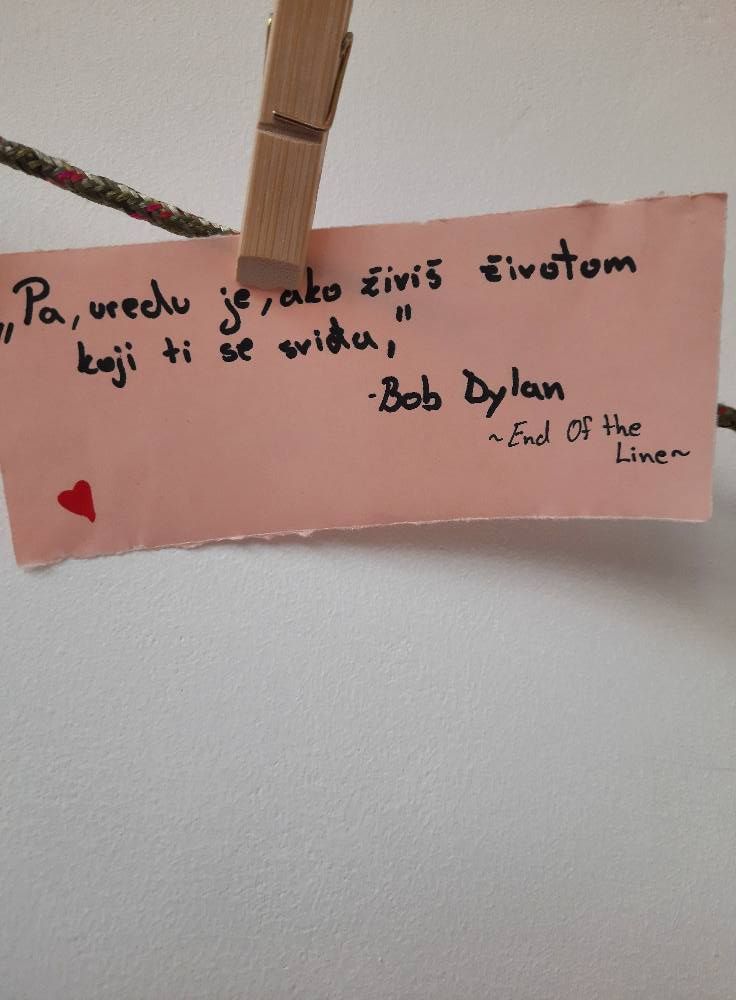 „Pa, uredu je, ako živiš životom
koji ti se sviđa,"
-Bob Dylan
~End Of the
Line~